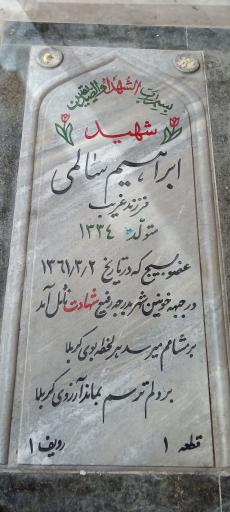 بسم رب الشهداء والصدیقین
شهید
ابراهیم سالمی
فرزند غریب
متولد ۱۳۳۴
عضو بسیج که در تاریخ ۱۳۶۱/۳/۲
در جبهه خونین شهر بدرجه رفیع شهادت نائل آمد
بر مشامم میرسد هر لحظه بوی کربلا
بر دلم ترسم بماند آرزوی کربلا
قطعه ۱ ردیف ۱